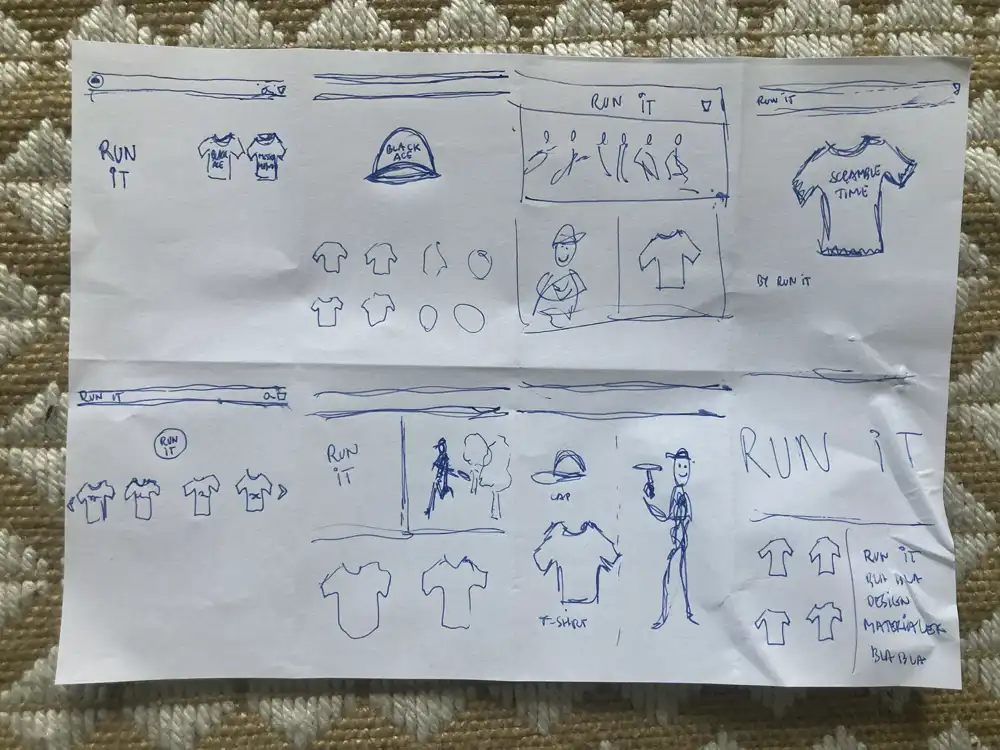 RUN
iT
BLACK
ACE
BLACK
ACE
RUN iT
RUN iT
SCRAMBLE
TIME
BY RUN iT
RUN iT
RUN
iT
RUN
iT
CAP
T-SHIRT
RUN iT
RUN iT
BLA BLA
DESIGN
MATERIALER
BLA BLA